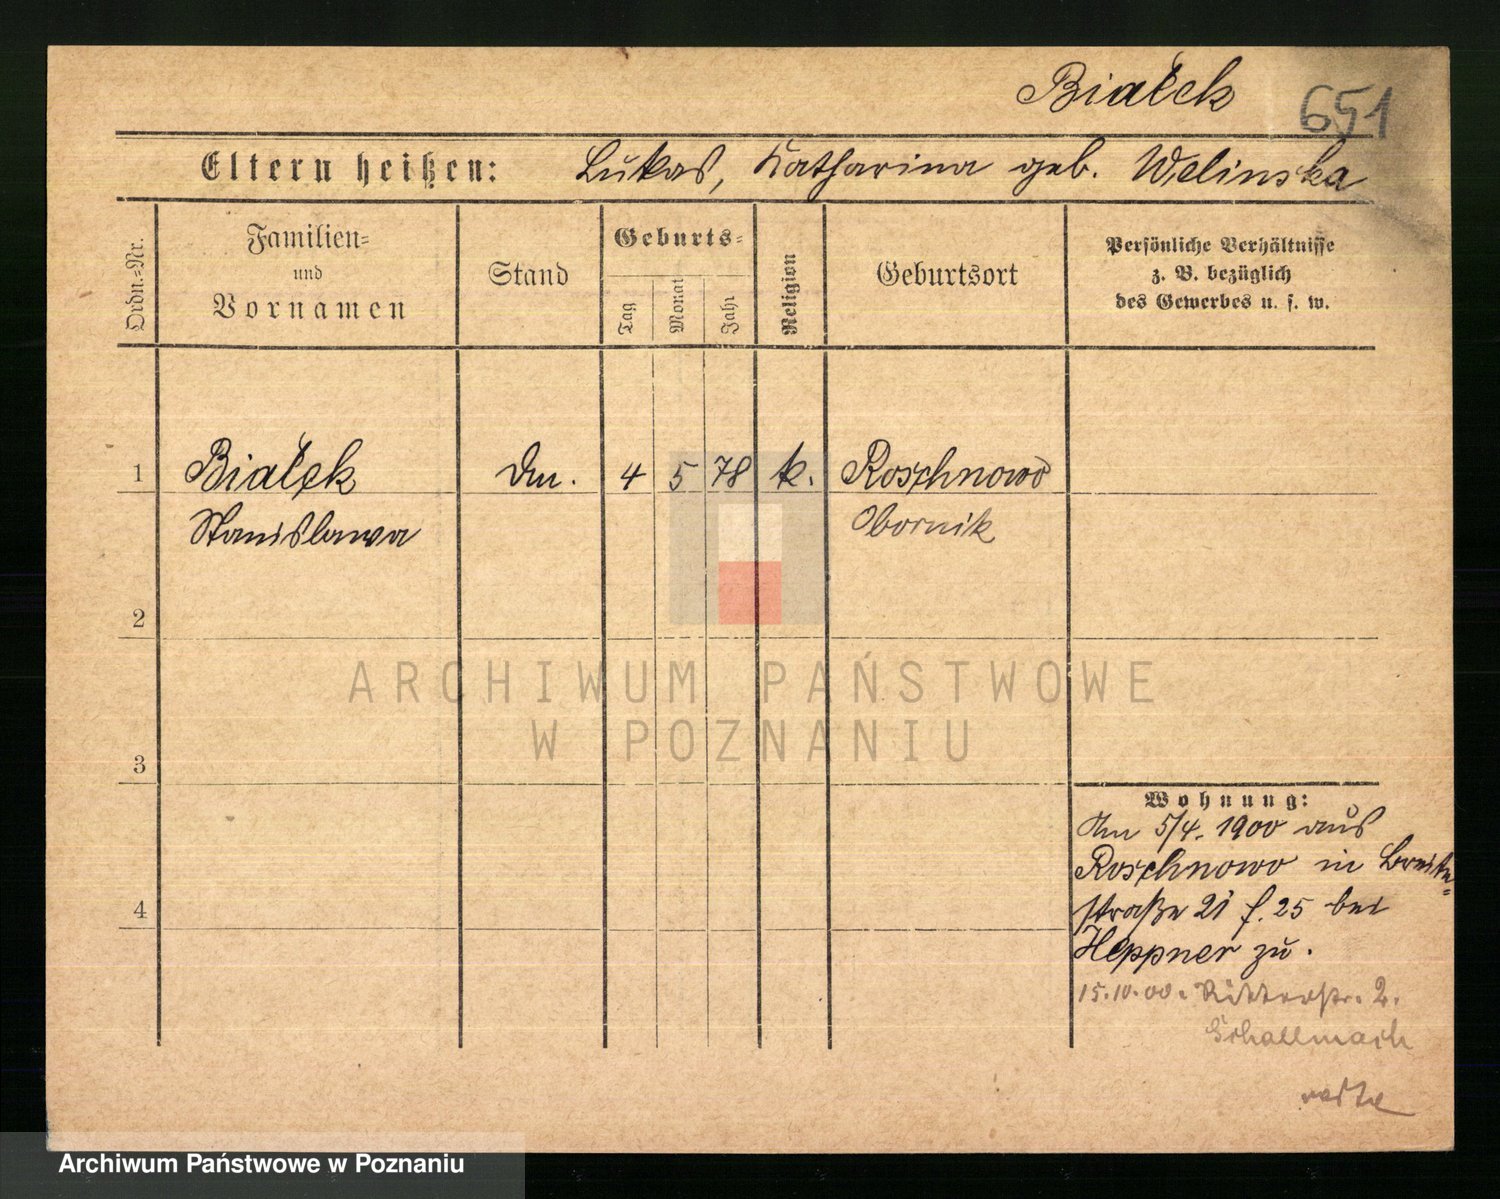 Białek 651
Eltern heißen: Lukas, Katharina geb. Welinska
Ordn.-Nr.
Familien-
und
Vornamen
Stand
Geburts-
Tag
Monat
Jahr
Religion
Geburtsort
Persönliche Verhältnisse
z. B. bezüglich
des Gewerbes u. s. w.
1 Białek Dm. 4 5 78 k. Roschnowo
Stanislawa Obornik
2
3
4
ARCHIWUM PAŃSTWOWE
W POZNANIU
Wohnung:
Am 5/4. 1900 aus
Roschnowo in Breite-
straße 21 f. 25 bei
Heppner zu.
15.10.00. Ritterstr. 2.
Schallmach
Archiwum Państwowe w Poznaniu